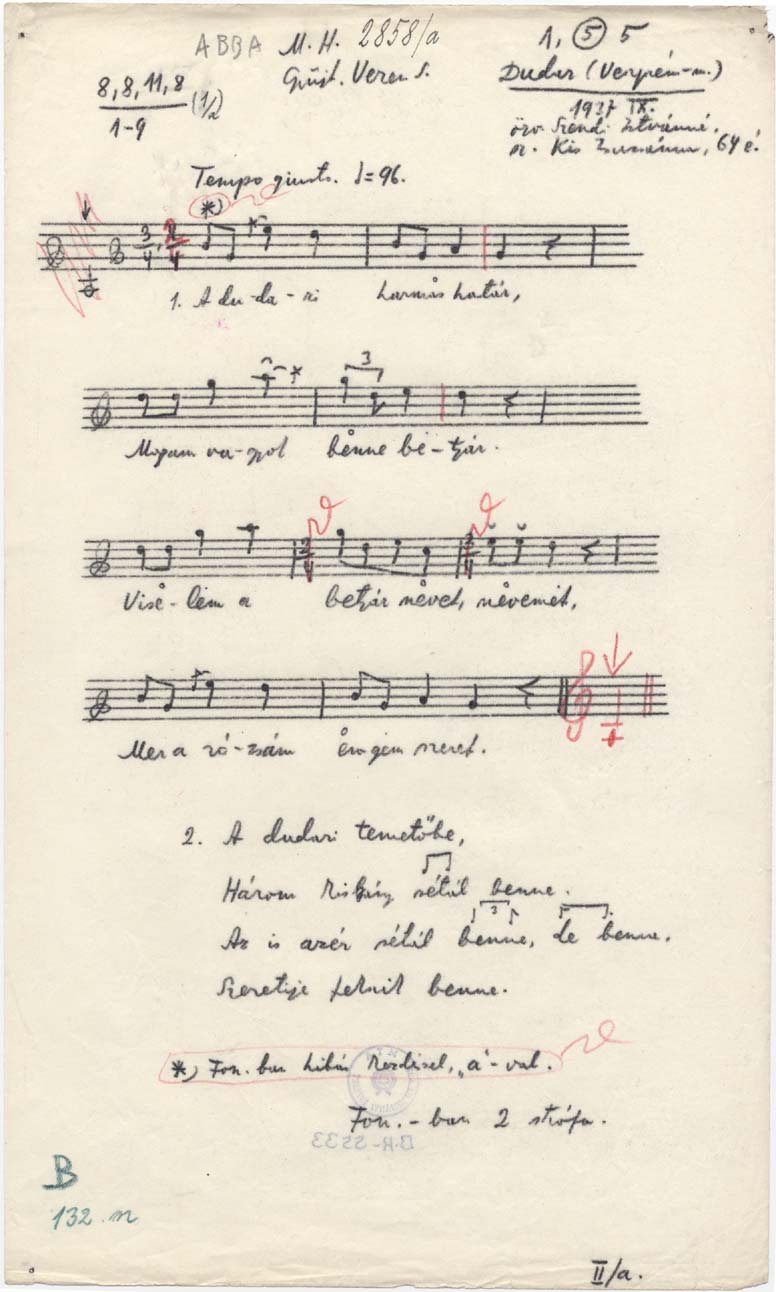 ABBA M. H. 2858/a
1, 5 5
8, 8, 11, 8 (1/2)
1-9
Gyűjt. Veress S.
Dudar (Veszprém-m.)
1937 IX.
özv. Szendi Istvánné,
sz. Kis Zsuzsánna, 64 é.
Tempo giusto. ♩=96.
*)
3/4, 2/4
1. A du-da-ri hármas határ,
3
Magam va-gyok benne be-tyár.
Vise-lem a betyár nevet, nevemet,
Mer a ró-zsám engem szeret.
2. A dudari temetőbe,
Három kislány sétál benne.
3
Az is azér sétál benne, de benne.
Szeretője fekszik benne.
*) Fon. ban hibás kezdéssel, „á"-val.
Fon.-ban 2 strófa.
B.R-5533
B
132. sz
II/a.